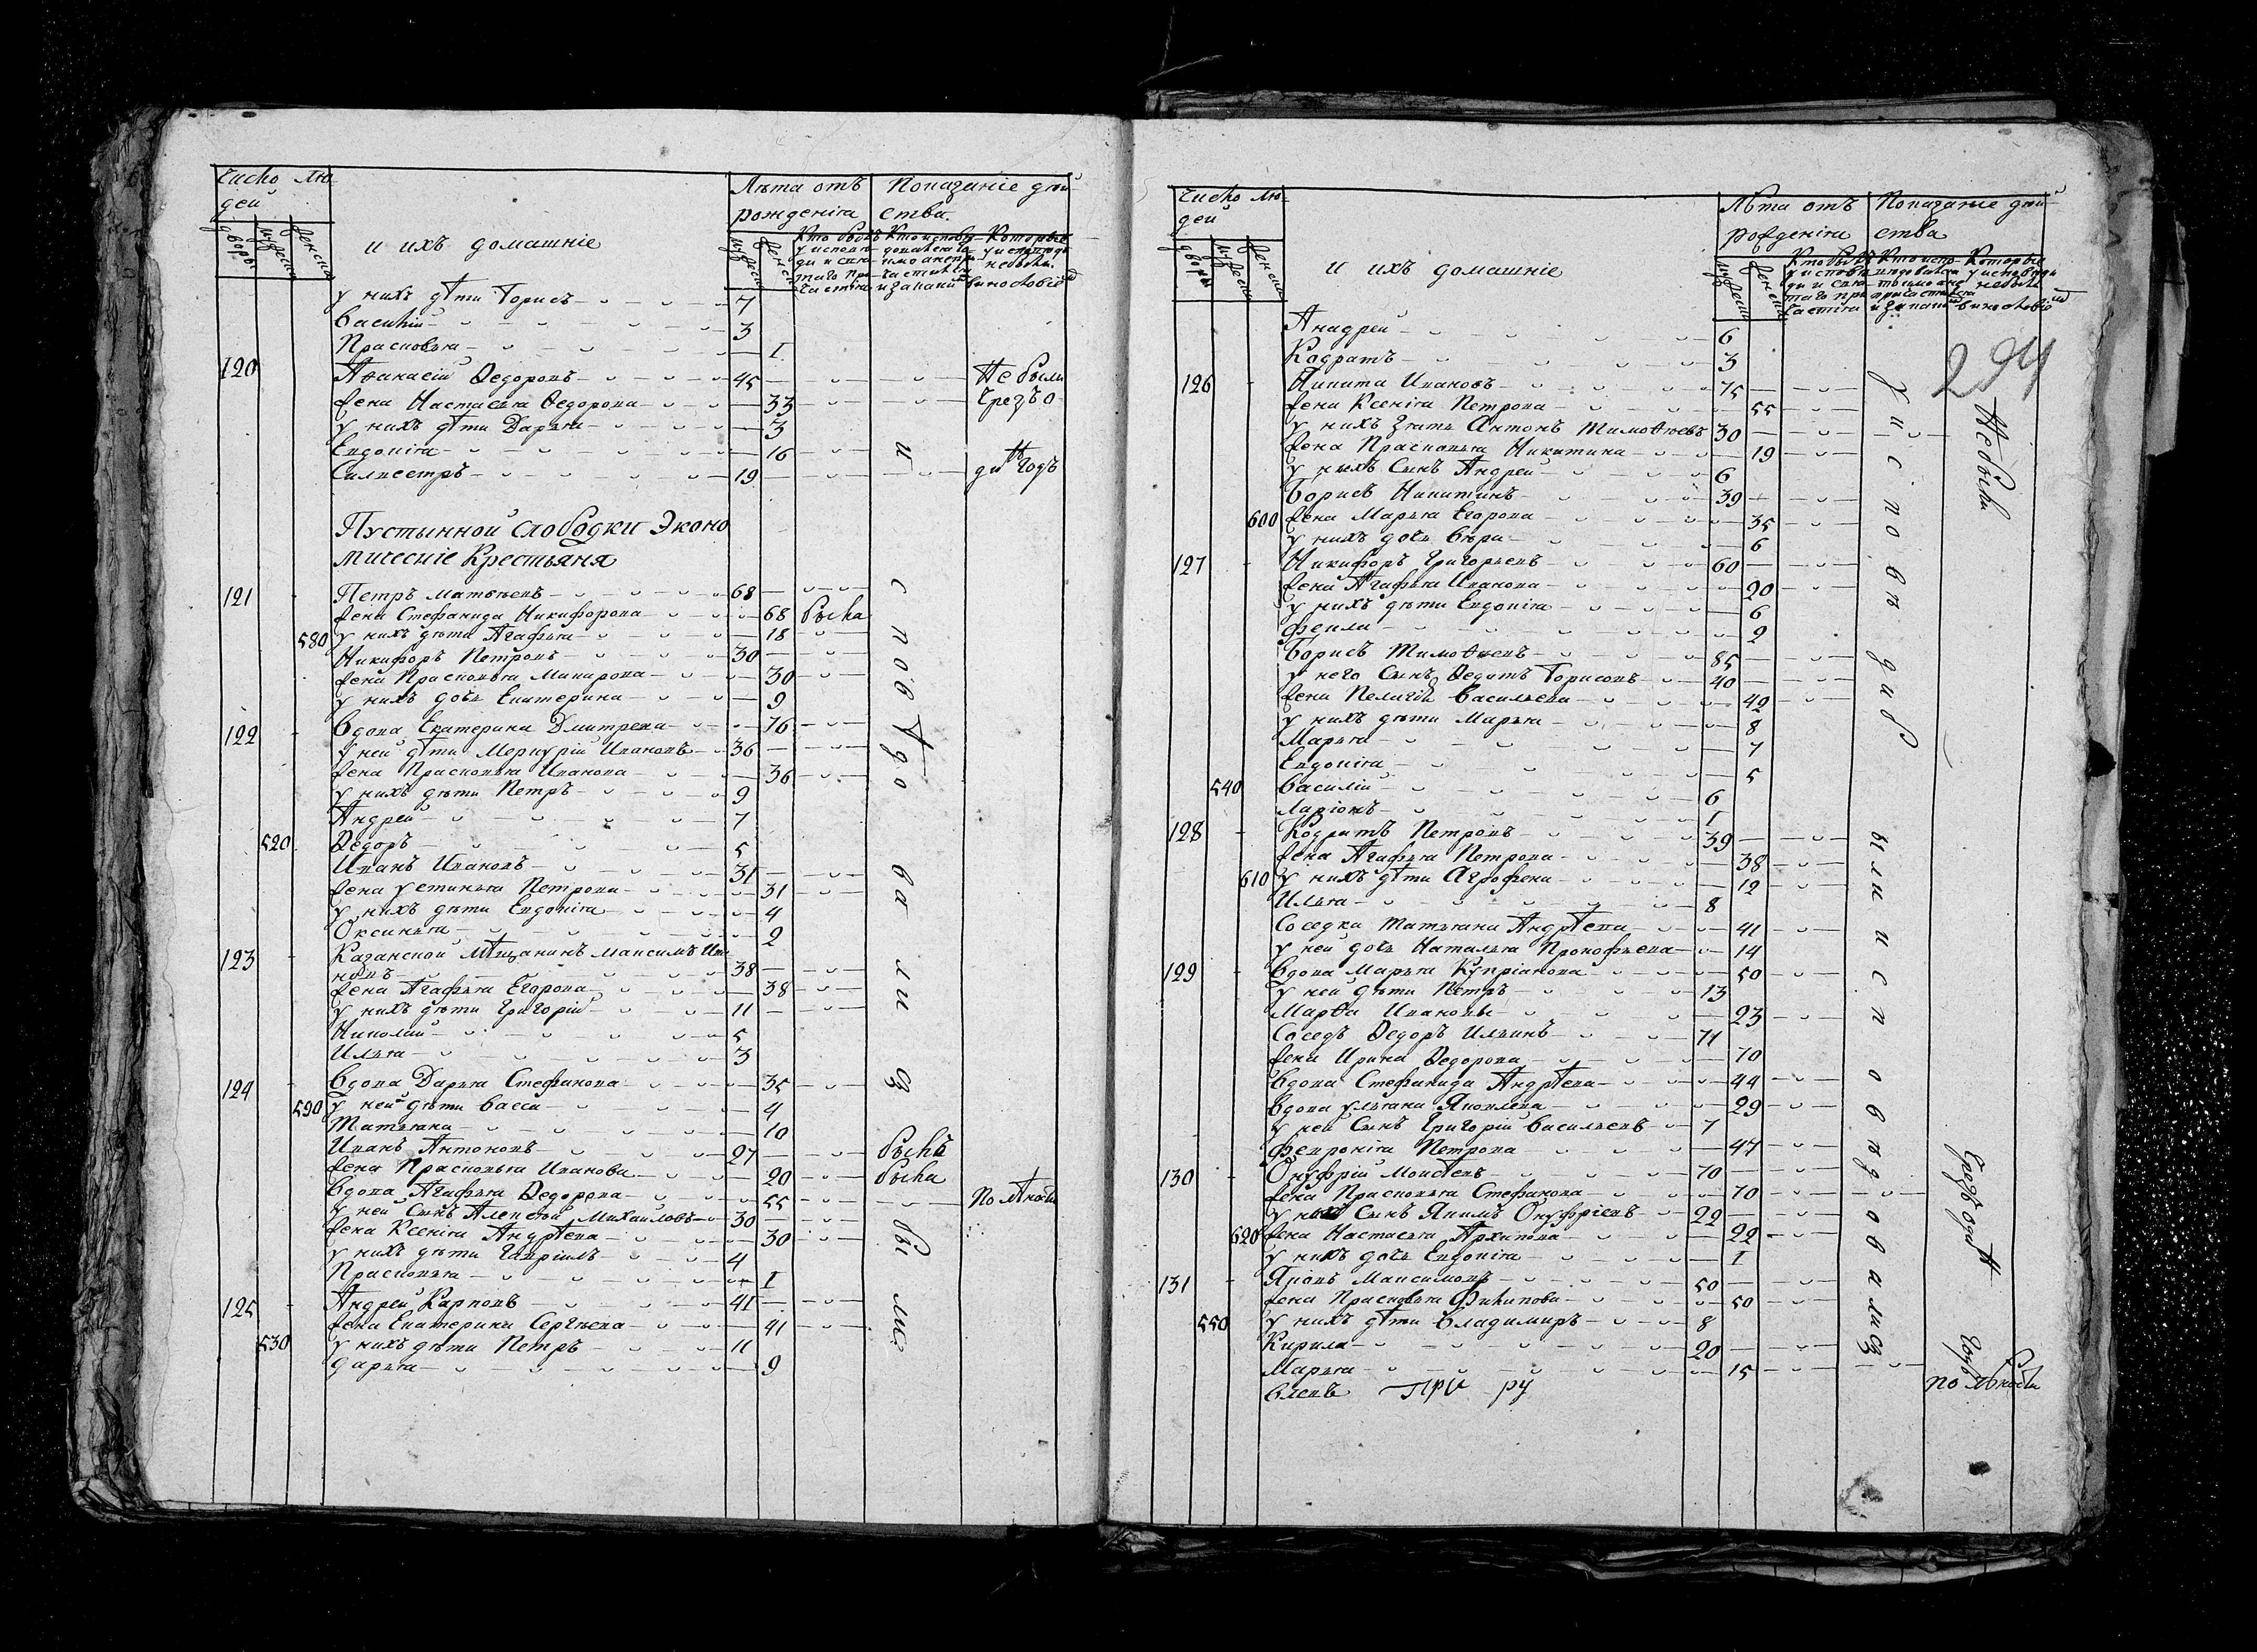 Число лю-
дей
дворы
мужеска
женска
и ихъ домашніе
Лѣта отъ
рожденія
мужеска
женска
Показаніе дѣй-
ства.
у нихъ дѣти Борисъ 7
Василій 3
Прасковья 1
120 Аѳанасій Ѳедоровъ 45 Не были
жена Настасья Ѳедорова 33 чрезъ о
у нихъ дѣти Дарья 3
Евдокія 16 и
Силвестръ 19 Годъ
Пустынной слободки Эконо
мическіе Крестьяня
121 Петръ Матвѣевъ 68
жена Стефанида Никифорова 68 была
580 у нихъ дѣти Агафья 18
Никифоръ Петровъ 30
жена Прасковья Макарова 30
у нихъ дочь Екатерина 9
122 Вдова Екатерина Дмитрева 76
у ней дѣти Меркурій Ивановъ 36
жена Прасковья Иванова 36
у нихъ дѣти Петръ 9
Андрей 7
520 Ѳедоръ 5
Иванъ Ивановъ 31
жена Устинья Петрова 31
у нихъ дѣти Евдокія 4
Оксинья 2
123 Казанской мѣщанинъ Максимъ Ива
новъ 38
жена Агафья Егорова 38
у нихъ дѣти Григорій 11
Николай 5
Илья 3
124 Вдова Дарья Стефанова 35
590 у ней дѣти Васса 4
Татьяна 10
Иванъ Антоновъ 27 былъ
жена Прасковья Иванова 20 была
Вдова Агафья Ѳедорова 55 по лѣности
у ней сынъ Алексѣй Михаиловъ 30
жена Ксенія Андрѣева 30
у нихъ дѣти Гавріилъ 4
Прасковья 1
125 Андрей Карповъ 41
жена Екатерина Сергѣева 41
530 у нихъ дѣти Петръ 11
Дарья 9
Число лю-
дей
дворы
мужеска
женска
и ихъ домашніе
Лѣта отъ
рожденія
мужеска
женска
Показаніе дѣй-
ства
294
Анадрей 6
Кодратъ 3
126 Никита Ивановъ 75
жена Ксенія Петрова 55
у нихъ зять Антонъ Тимоѳѣевъ 30
жена Прасковья Никитина 19
у нихъ сынъ Андрей 6
Борисъ Никитинъ 39
600 жена Марья Егорова 35
у нихъ дочь Вѣра 6
127 Никифоръ Григорьевъ 60
жена Агафья Иванова 20
у нихъ дѣти Евдокія 6
Фекла 2
Борисъ Тимоѳѣевъ 85
у него сынъ Ѳедотъ Борисовъ 40
жена Пелагія Васильева 42
у нихъ дѣти Марья 8
Марья 7
Евдокія 5
540 Василій 6
Ларіонъ 1
128 Кодратъ Петровъ 39
жена Агафья Петрова 38
610 у нихъ дѣти Агрофена 12
Илья 8
Соседка Татьяна Андрѣева 41
у ней дочь Наталья Прокофьева 14
129 Вдова Марья Купріанова 50
у ней дѣти Петръ 13
Марѳа Ивановы 23
Соседъ Ѳедоръ Ильинъ 71
жена Ирина Ѳедорова 70
Вдова Стефанида Андрѣева 44
Вдова Ульяна Яковлева 29
у ней сынъ Григорій Васильевъ 7
Февронія Петрова 47
130 Онуфрій Моисѣевъ 70
жена Прасковья Стефанова 70
у нихъ сынъ Якимъ Онуфріевъ 22
620 жена Настасья Архипова 22
у нихъ дочь Евдокія 1
131 Яковъ Максимовъ 50
жена Прасковья Филипова 50
550 у нихъ дѣти Владимиръ 8
Кирила 20
Марья 15
влевъ При ру
у и с п о в ѣ д и б
ы л и и с п о в ѣ д о в а л и с
Не были
чрезъ
Годъ
по лѣности